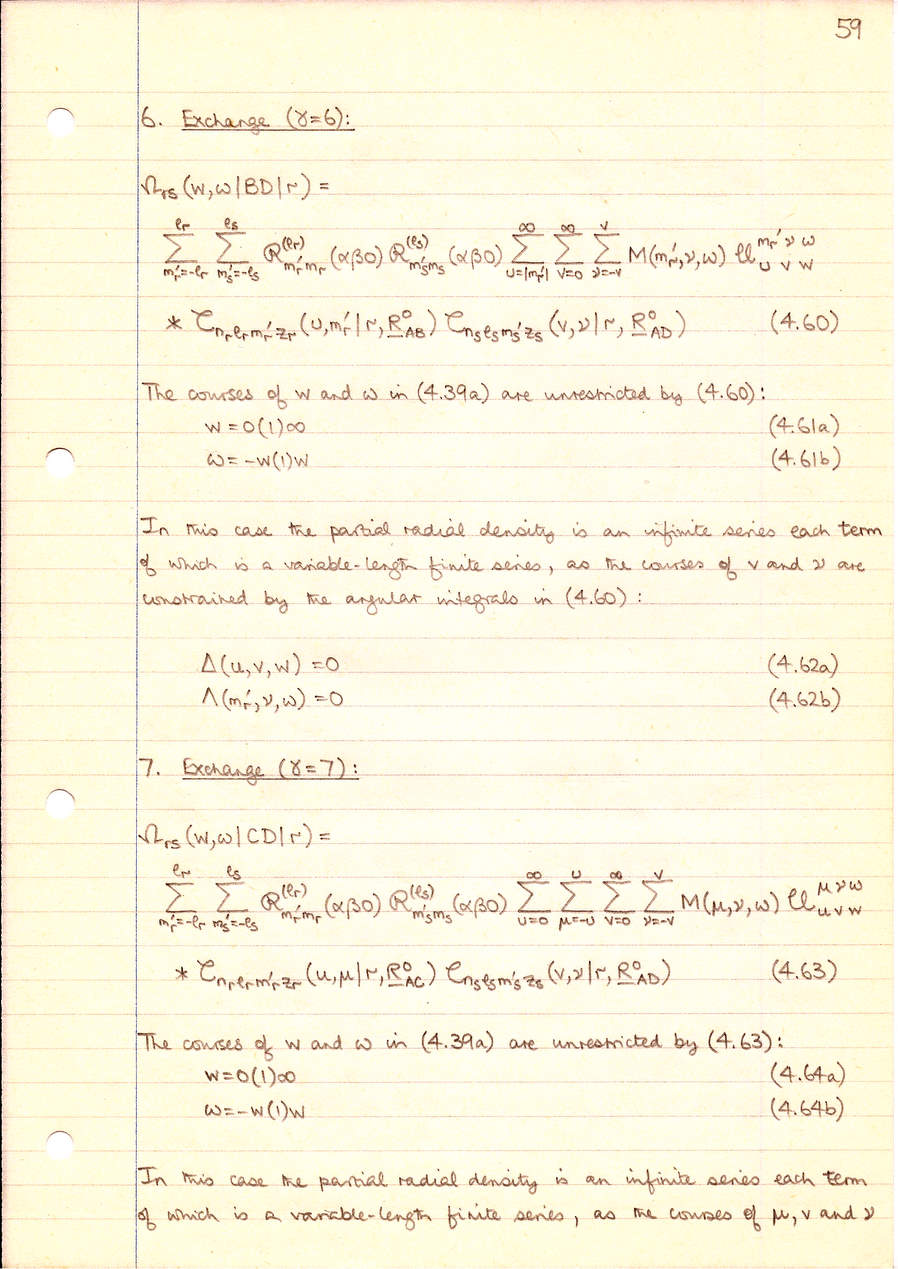 59
6. Exchange (γ=6):
Ω_rs(w,ω|BD|r) =
∑_{m_r'=-ℓ_r}^{ℓ_r} ∑_{m_s'=-ℓ_s}^{ℓ_s} R^{(ℓ_r)}_{m_r'm_r}(αβ0) R^{(ℓ_s)}_{m_s'm_s}(αβ0) ∑_{u=|m_r'|}^{∞} ∑_{v=0}^{∞} ∑_{ν=-v}^{v} M(m_r',ν,ω) U^{m_r' ν ω}_{u v w}
* C_{n_rℓ_rm_r'z_r}(u,m_r'|r,R°_AB) C_{n_sℓ_sm_s'z_s}(v,ν|r,R°_AD) (4.60)
The courses of w and ω in (4.39a) are unrestricted by (4.60):
w = 0(1)∞ (4.61a)
ω = -w(1)w (4.61b)
In this case the partial radial density is an infinite series each term
of which is a variable-length finite series, as the courses of v and ν are
constrained by the angular integrals in (4.60) :
Δ(u,v,w) = 0 (4.62a)
Λ(m_r',ν,ω) = 0 (4.62b)
7. Exchange (γ=7):
Ω_rs(w,ω|CD|r) =
∑_{m_r'=-ℓ_r}^{ℓ_r} ∑_{m_s'=-ℓ_s}^{ℓ_s} R^{(ℓ_r)}_{m_r'm_r}(αβ0) R^{(ℓ_s)}_{m_s'm_s}(αβ0) ∑_{u=0}^{∞} ∑_{μ=-u}^{u} ∑_{v=0}^{∞} ∑_{ν=-v}^{v} M(μ,ν,ω) U^{μ ν ω}_{u v w}
* C_{n_rℓ_rm_r'z_r}(u,μ|r,R°_AC) C_{n_sℓ_sm_s'z_s}(v,ν|r,R°_AD) (4.63)
The courses of w and ω in (4.39a) are unrestricted by (4.63):
w=0(1)∞ (4.64a)
ω=-w(1)w (4.64b)
In this case the partial radial density is an infinite series each term
of which is a variable-length finite series, as the courses of μ, v and ν